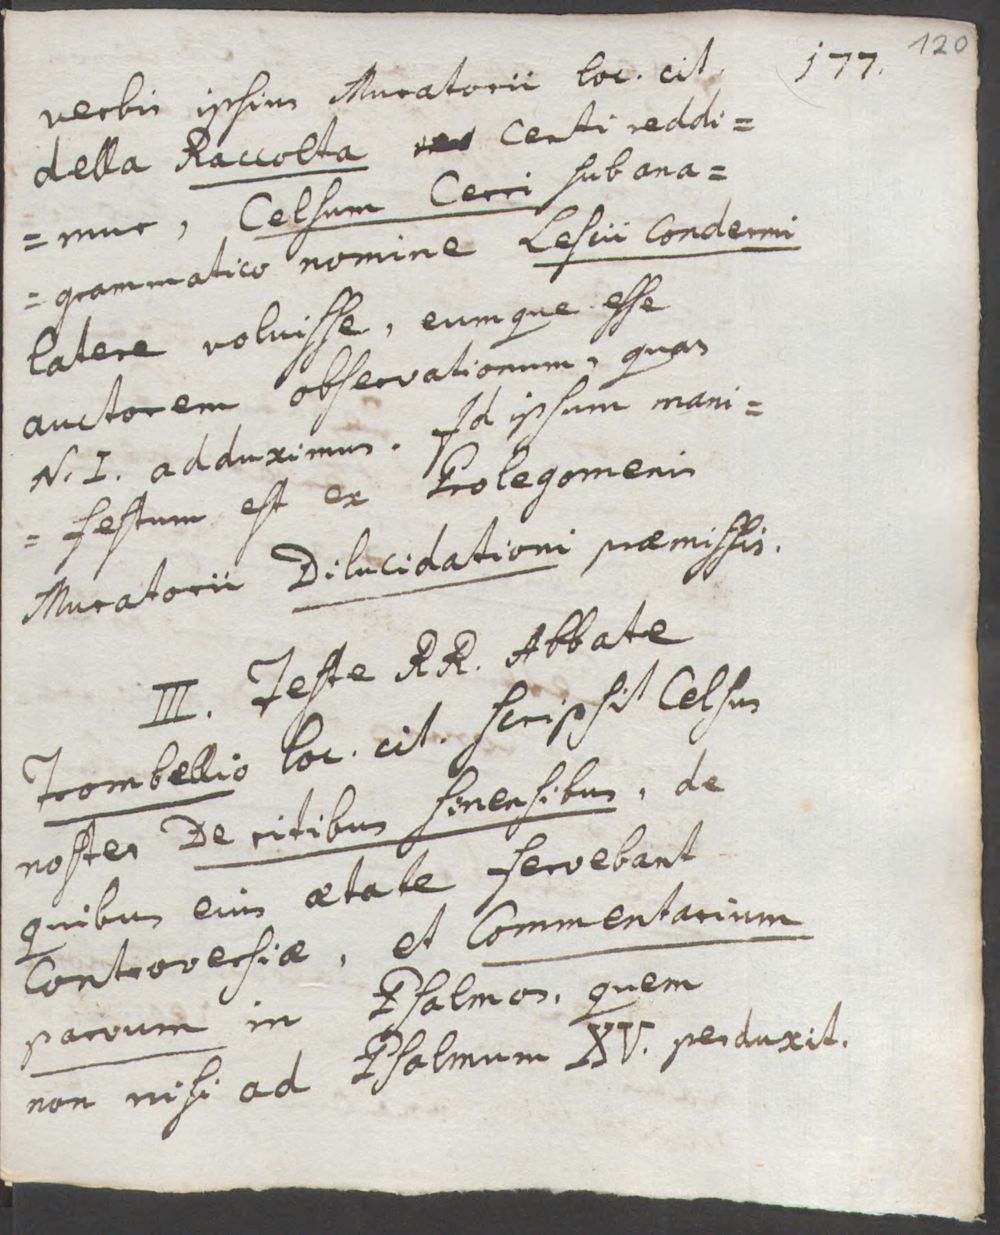 120
177.
verbis ipsius Muratorii loc. cit.
della Raccolta certi reddi=
=mur, Celsum Cerri sub ana=
=grammatico nomine Lescii Condermi
latere voluisse, eumque esse
auctorem observationum, quas
N. I. adduximus. Id ipsum mani=
=festum est ex Prolegomenis
Muratorii Dilucidationi præmissis.
III. Teste RR. Abbate
Trombellio loc. cit. scripsit Celsus
noster De ritibus sinensibus, de
quibus eius ætate fervebant
Controversiæ, et Commentarium
parvum in Psalmos, quem
non nisi ad Psalmum XV. perduxit.